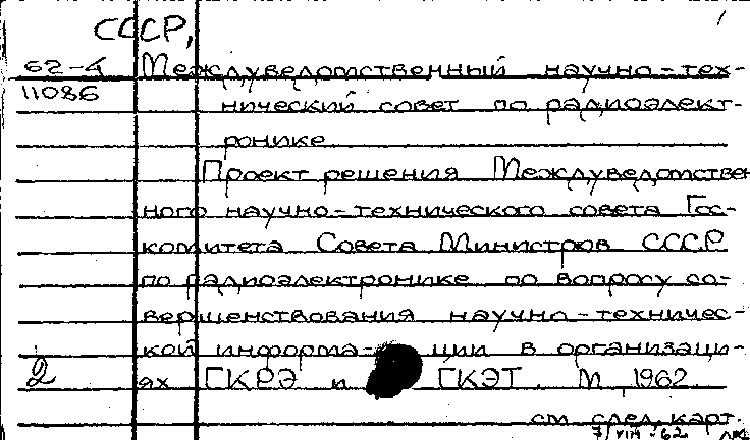 СССР,
62-4 Междуведомственный научно-тех-
11086 нический совет по радиоэлект-
ронике
Проект решения Междуведомствен
ного научно-технического совета Гос-
комитета Совета Министров СССР
по радиоэлектронике по вопросу со-
вершенствования научно-техничес-
кой информа- ции в организаци-
2 ях ГКРЭ и ГКЭТ. М 1962
см след. карт.
7/VIII-62